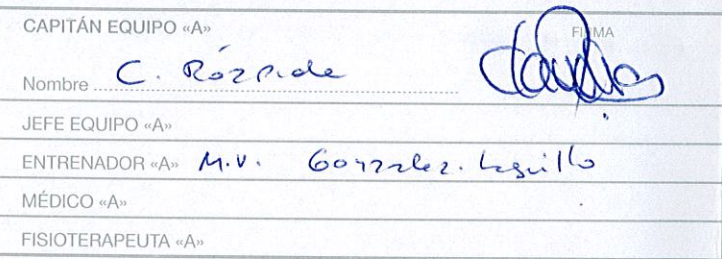 CAPITÁN EQUIPO «A»
FIRMA
Nombre C. Rózpide
JEFE EQUIPO «A»
ENTRENADOR «A» M.V. Gonzalez-
MÉDICO «A»
FISIOTERAPEUTA «A»